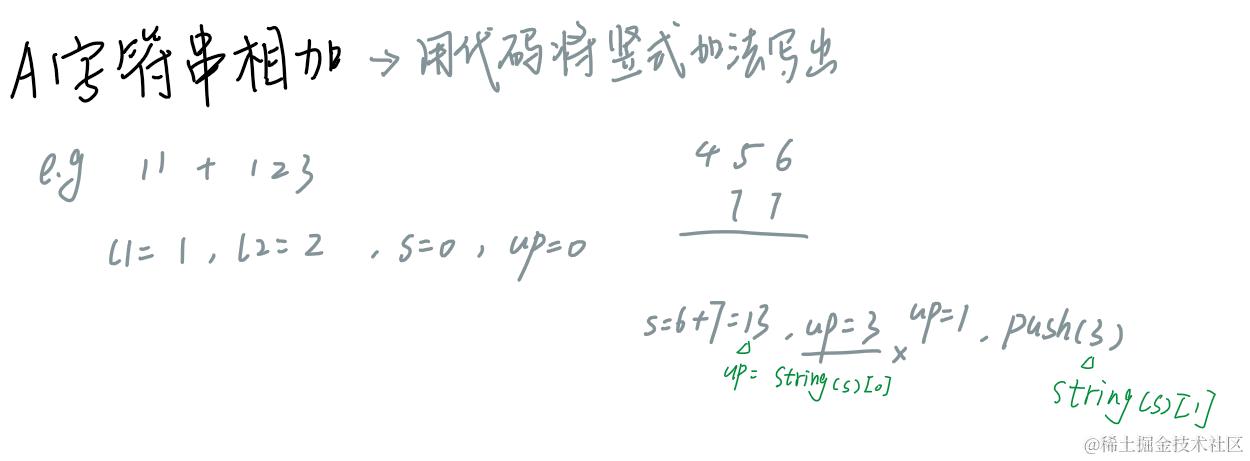 A 字符串相加 → 用代码将竖式加法写出
e.g 11 + 123
l1= 1 , l2= 2 , s=0 , up=0
4 5 6
7 7
s=6+7=13 . up=3 × up=1 . push(3)
up= String(s)[0]
String(s)[1]
@稀土掘金技术社区